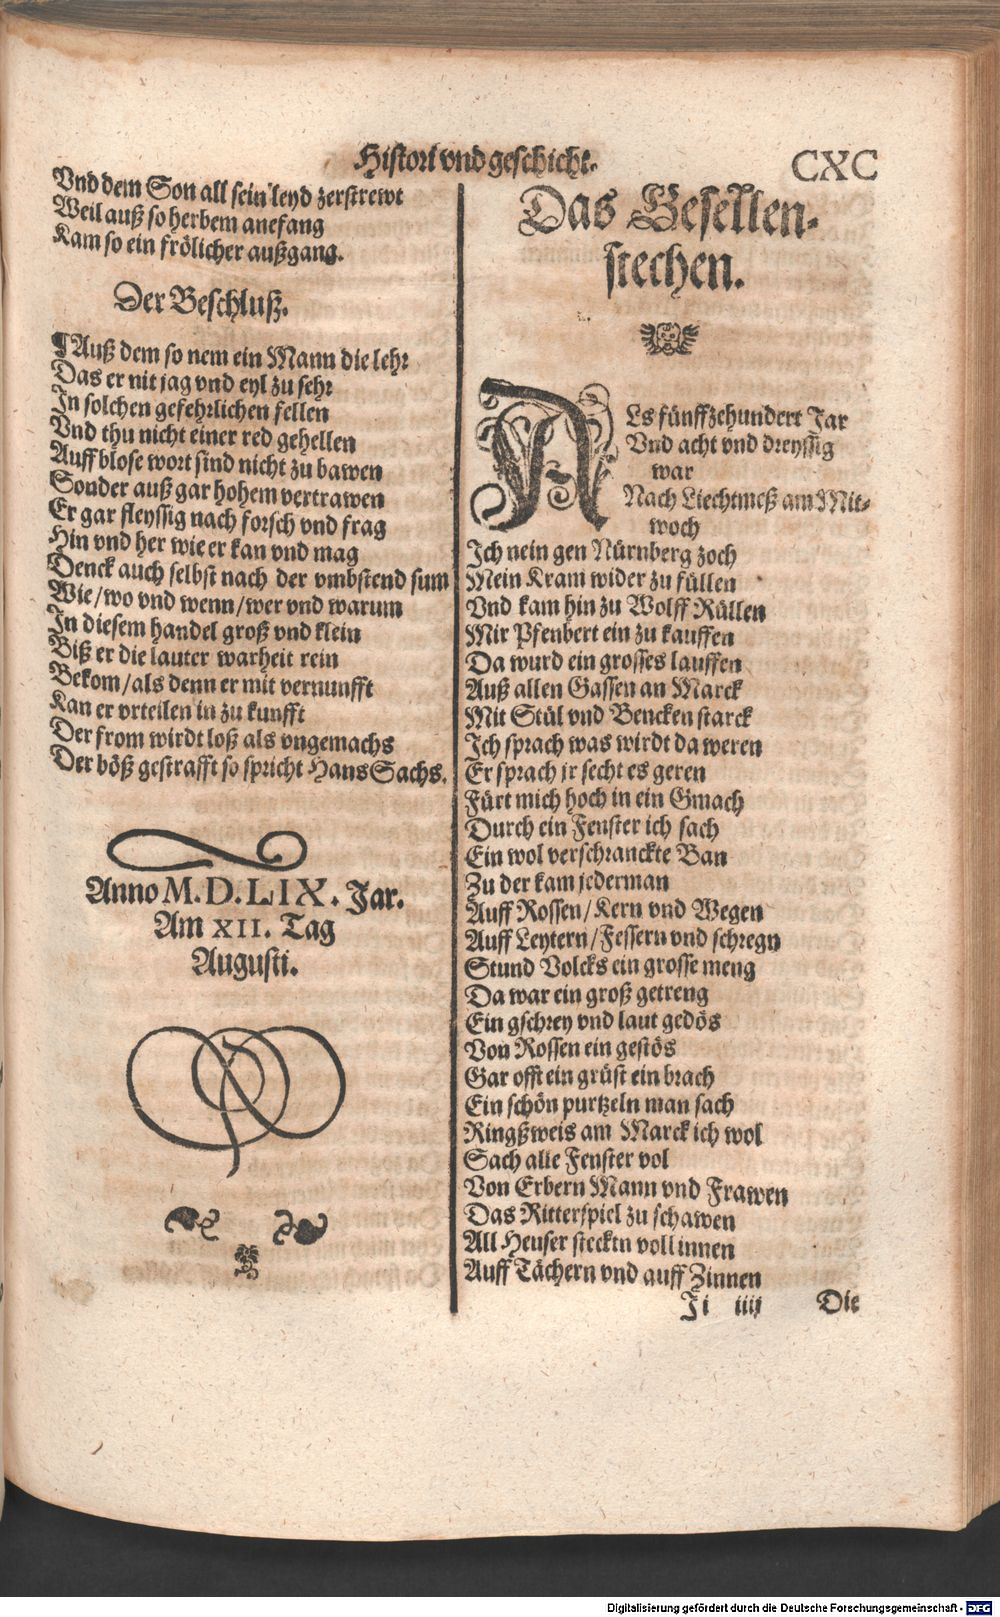 Histori vnd geschicht.
CXC
Vnd dem Son all sein leyd zerstrewt
Weil auß so herbem anefang
Kam so ein frölicher außgang.
Der Beschluß.
¶ Auß dem so nem ein Mann die lehr
Das er nit jag vnd eyl zu sehr
In solchen gefehrlichen fellen
Vnd thu nicht einer red gehellen
Auff blose wort sind nicht zu bawen
Sonder auß gar hohem vertrawen
Er gar fleyssig nach forsch vnd frag
Hin vnd her wie er kan vnd mag
Denck auch selbst nach der vmbstend sum
Wie/wo vnd wenn/wer vnd warum
In diesem handel groß vnd klein
Biß er die lauter warheit rein
Bekom/als denn er mit vernunfft
Kan er vrteilen in zu kunfft
Der from wirdt loß als vngemachs
Der böß gestrafft so spricht Hans Sachs.
Anno M.D.LIX. Jar.
Am XII. Tag
Augusti.
Das Gesellen-
stechen.
ALs fünffzehundert Jar
Vnd acht vnd dreyssig
war
Nach Liechtmeß am Mit-
woch
Ich nein gen Nürnberg zoch
Mein Kram wider zu füllen
Vnd kam hin zu Wolff Rüllen
Mir Pfenbert ein zu kauffen
Da wurd ein grosses lauffen
Auß allen Gassen an Marck
Mit Stül vnd Bencken starck
Ich sprach was wirdt da weren
Er sprach jr secht es geren
Fürt mich hoch in ein Gmach
Durch ein Fenster ich sach
Ein wol verschranckte Ban
Zu der kam jederman
Auff Rossen/Kern vnd Wegen
Auff Leytern/Fessern vnd schregn
Stund Volcks ein grosse meng
Da war ein groß getreng
Ein gschrey vnd laut gedös
Von Rossen ein gestös
Gar offt ein grüst ein brach
Ein schön purtzeln man sach
Ringßweis am Marck ich wol
Sach alle Fenster vol
Von Erbern Mann vnd Frawen
Das Ritterspiel zu schawen
All Heuser stecktn voll innen
Auff Tächern vnd auff Zinnen
Ji iiij
Die
Digitalisierung gefördert durch die Deutsche Forschungsgemeinschaft - DFG